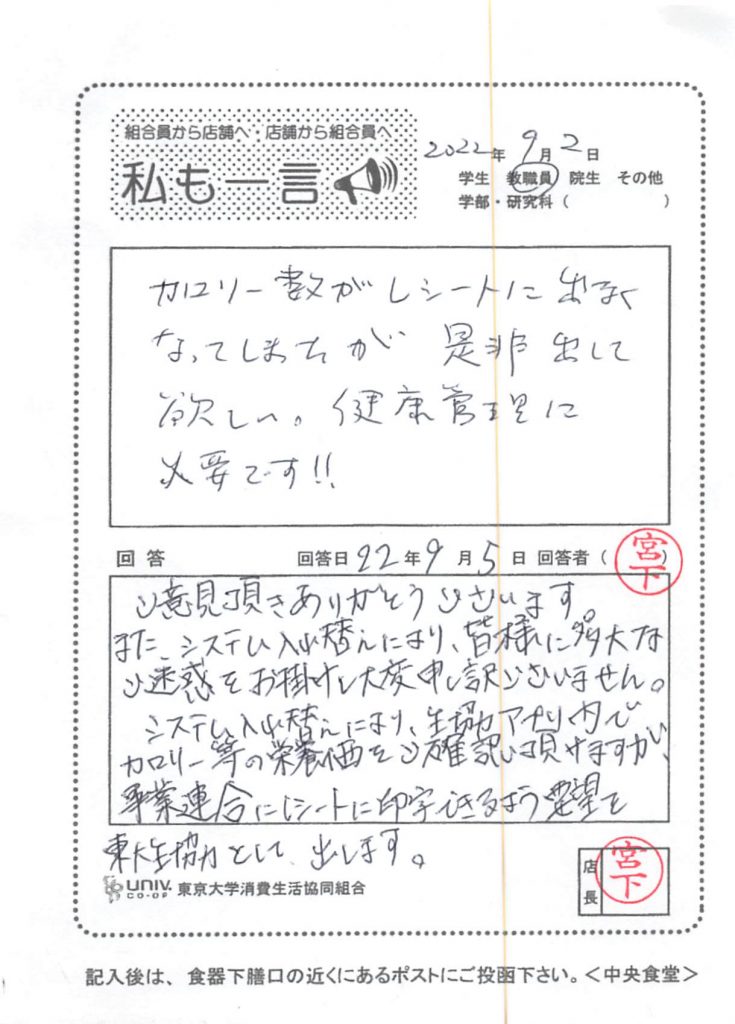 組合員から店舗へ・店舗から組合員へ
私も一言
2022年 9月 2日
学生 教職員 院生 その他
学部・研究科（ ）
カロリー数がレシートに出なく
なってしまったが 是非出して
欲しい。健康管理に
必要です!!
回答 回答日 22年 9月 5日 回答者（宮下）
ご意見頂きありがとうございます。
また、システム入れ替えにより、皆様に多大な
ご迷惑をお掛けし大変申し訳ございません。
システム入れ替えにより、生協アプリ内で
カロリー等の栄養価をご確認頂けますが、
事業連合にレシートに印字できるよう要望を
東大生協として、出します。
UNIV. CO-OP 東京大学消費生活協同組合
店長 宮下
記入後は、食器下膳口の近くにあるポストにご投函下さい。＜中央食堂＞